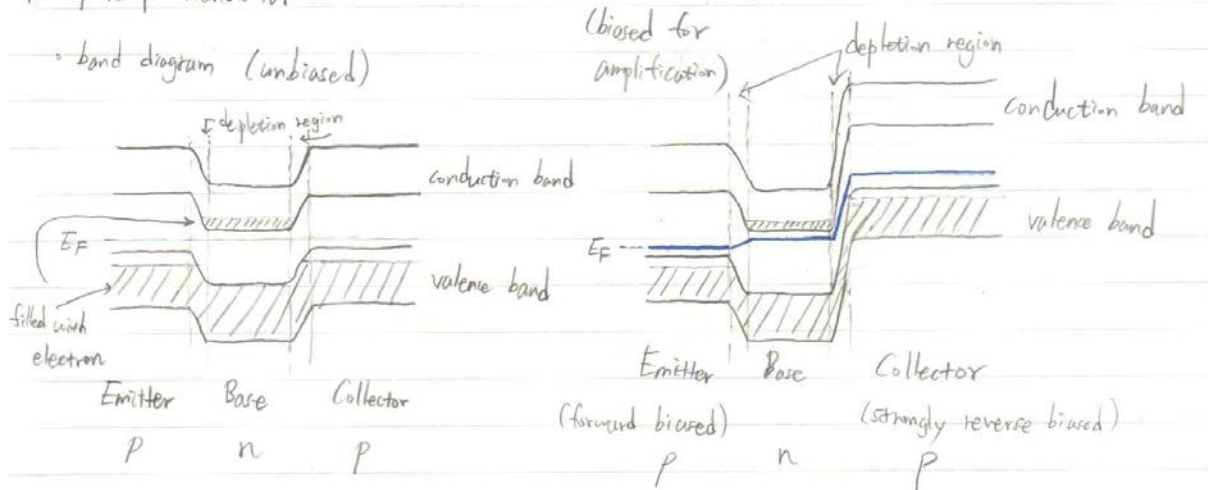 ◦ band diagram (unbiased)
depletion region
conduction band
E_F
valence band
filled with
electron
Emitter Base Collector
p n p
(biased for
amplification)
depletion region
conduction band
E_F
valence band
Emitter Base Collector
(forward biased) (strongly reverse biased)
p n p